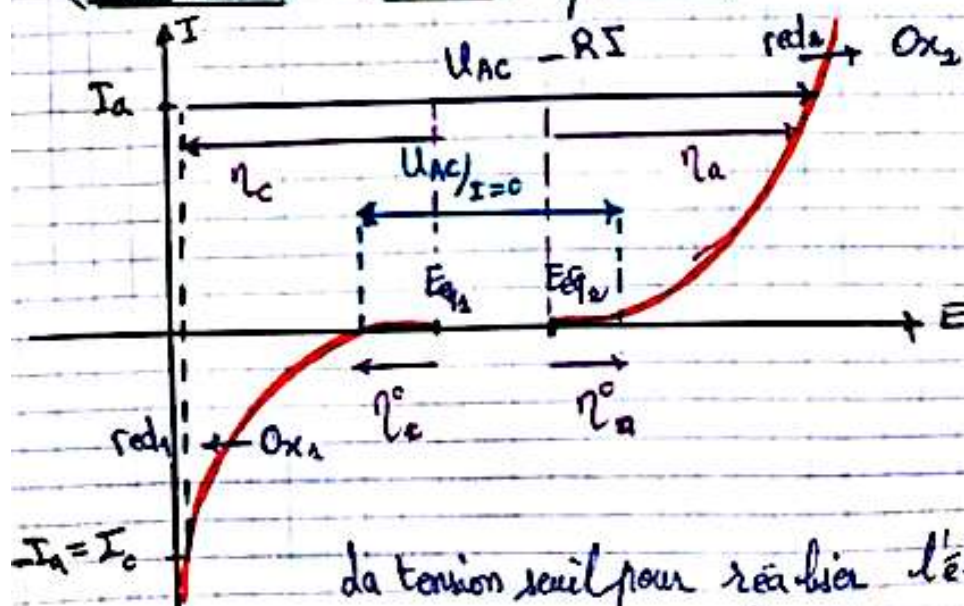 I
U_AC - RI
red₂ → Ox₂
I_a
η_c
U_AC/I=0
η_a
E_éq₁
E_éq₂
E
η°_c
η°_a
red₁ ← Ox₁
-I_a = I_c
La tension seuil pour réaliser l'é